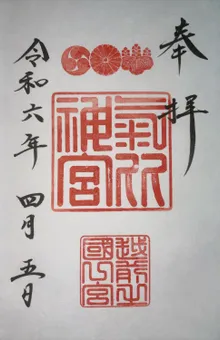 奉拝
氣比
神宮
越前之
國一宮
令和六年 四月 五日